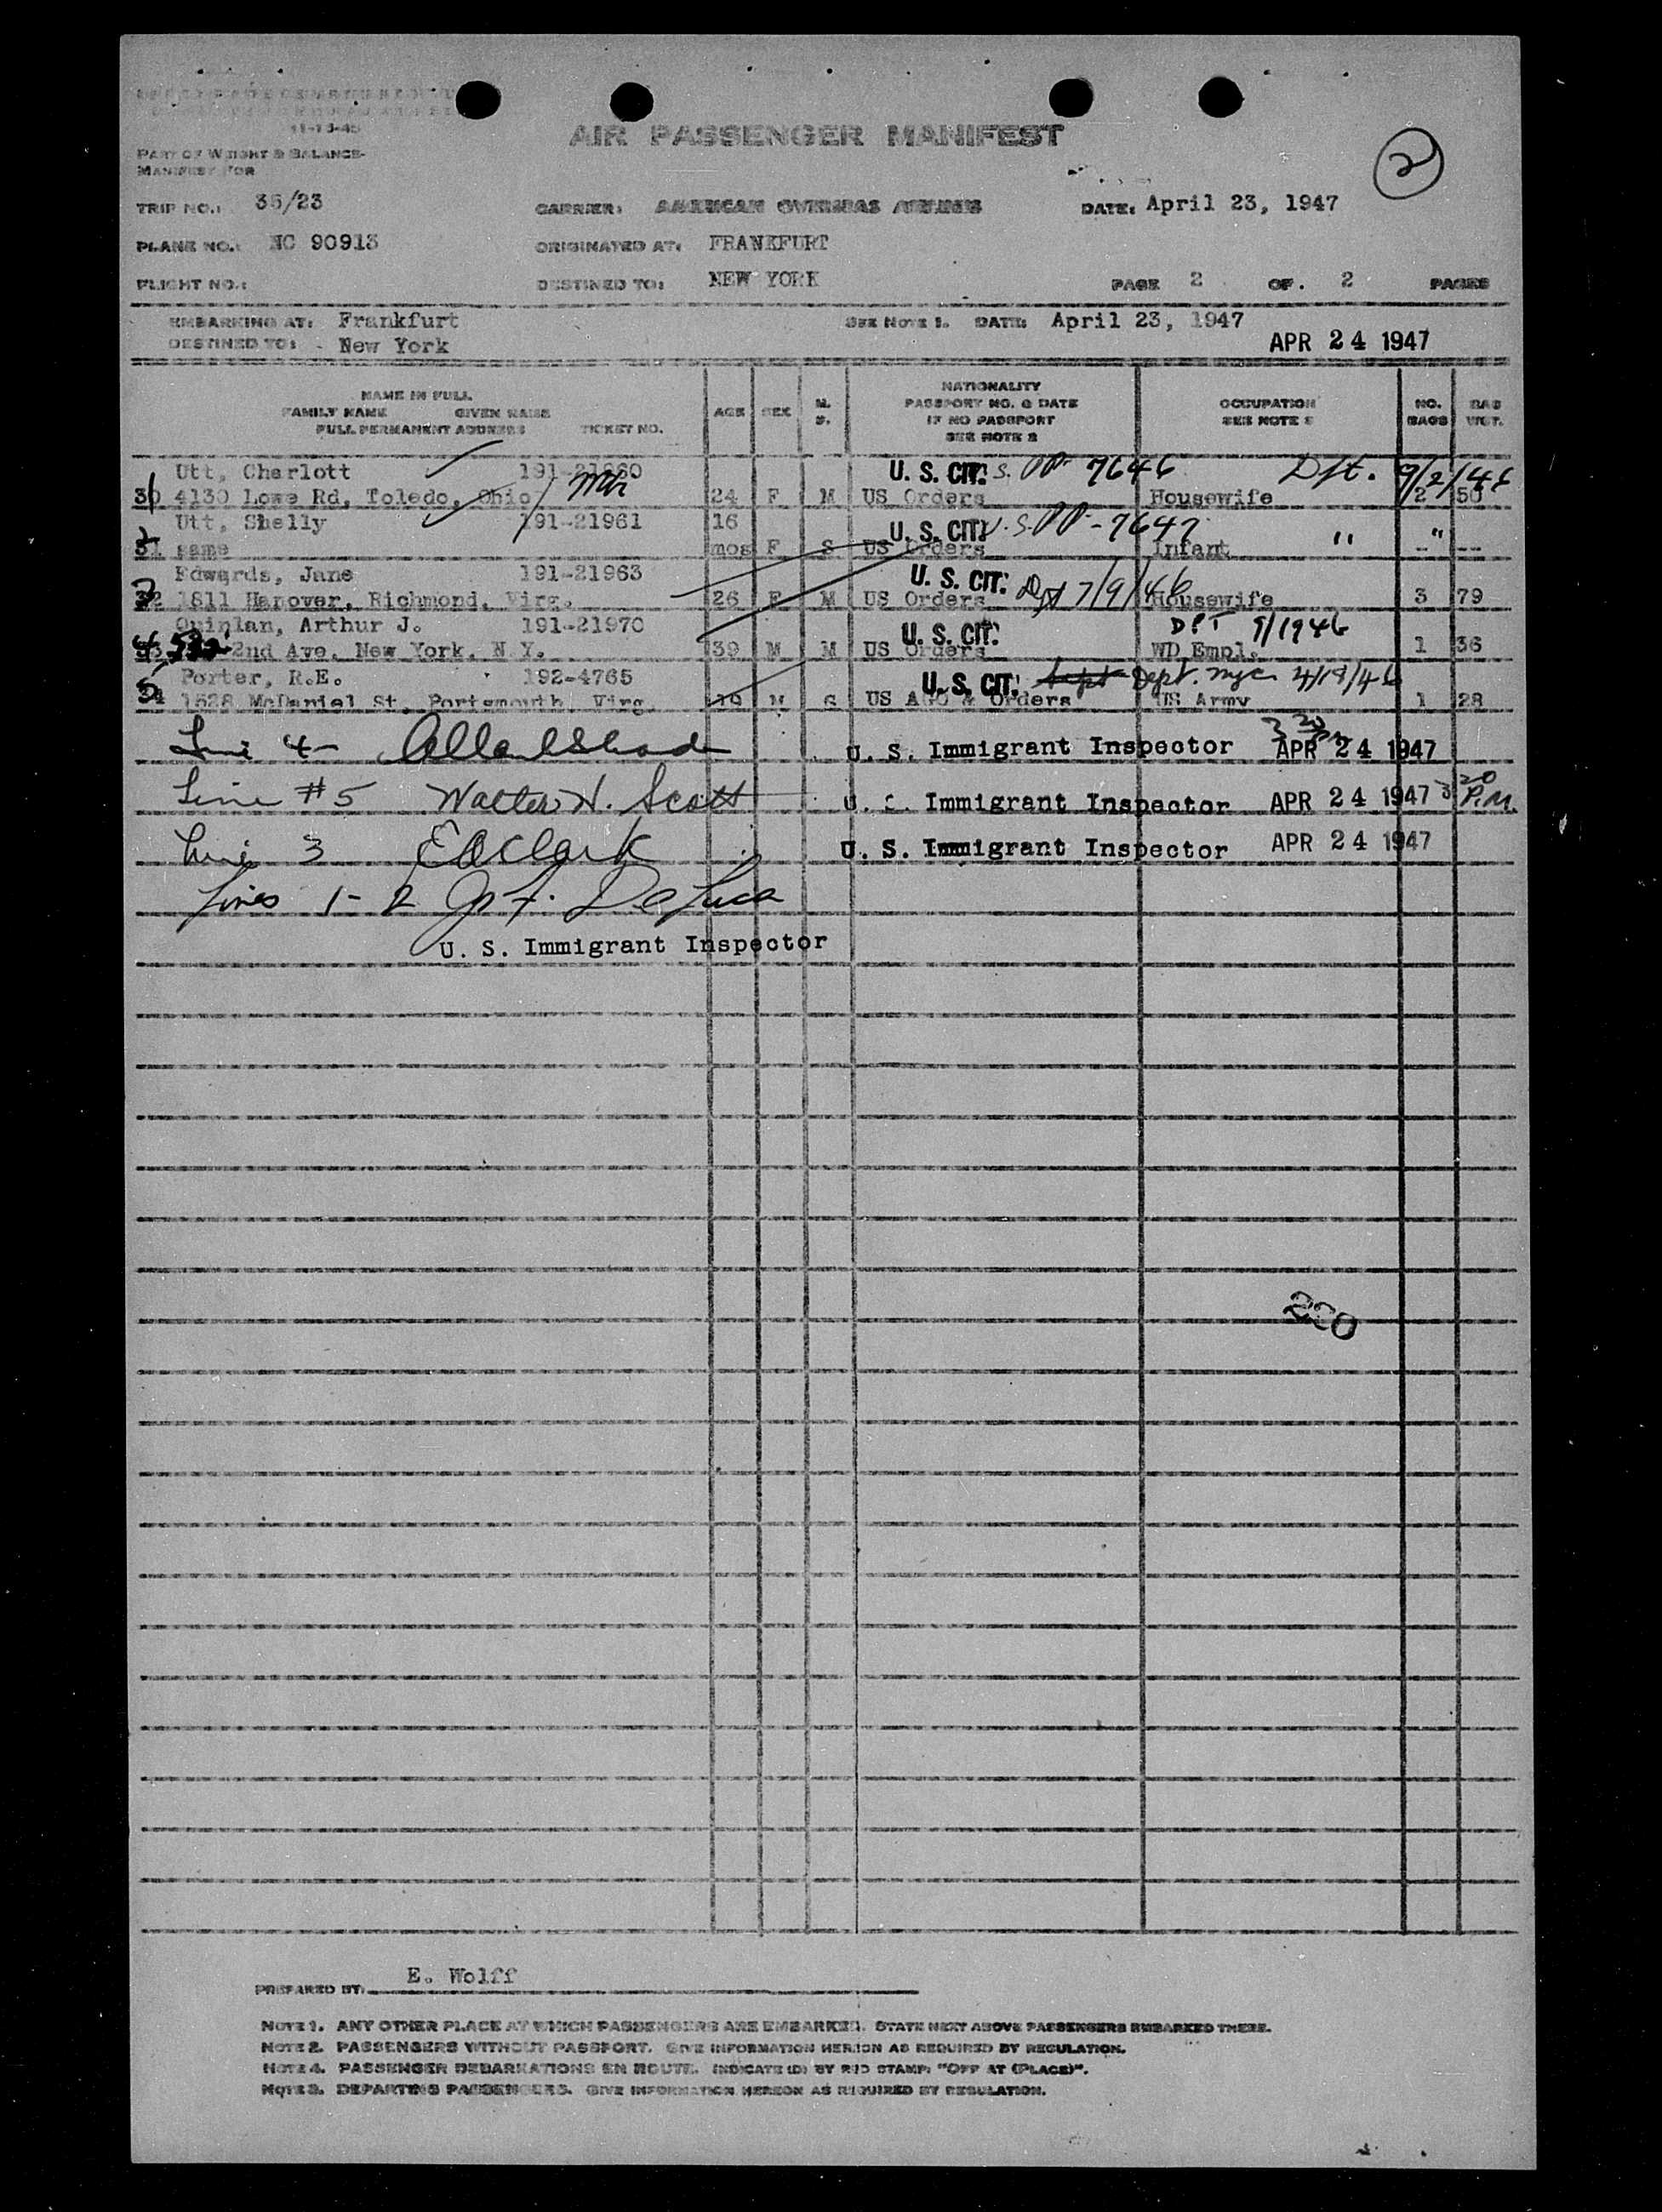 11-13-45
AIR PASSENGER MANIFEST
2
PART OF WEIGHT & BALANCE
MANIFEST FOR
TRIP NO.: 35/23 CARRIER: AMERICAN OVERSEAS AIRLINES DATE: April 23, 1947
PLANE NO.: NC 90913 ORIGINATED AT: FRANKFURT
FLIGHT NO.: DESTINED TO: NEW YORK PAGE 2 OF 2 PAGES
EMBARKING AT: Frankfurt SEE NOTE 1. DATE: April 23, 1947
DESTINED TO: New York APR 24 1947
NAME IN FULL
FAMILY NAME GIVEN NAME
FULL PERMANENT ADDRESS TICKET NO.
AGE SEX M. S.
NATIONALITY
PASSPORT NO. & DATE
IF NO PASSPORT
SEE NOTE 2
OCCUPATION
NO. BAGS
BAG WGT.
Utt, Charlott 191-21960 U. S. CIT. U.S. PP- 7646 Dpt. 9/2/46
30 4130 Lowe Rd, Toledo, Ohio 24 F M US Orders Housewife 2 50
Utt, Shelly 191-21961 16 U. S. CIT. U.S. PP- 7647 " "
31 same mos F S US Orders Infant -- --
Edwards, Jane 191-21963 U. S. CIT. Dpt 7/9/46
32 1811 Hanover, Richmond, Virg. 26 F M US Orders Housewife 3 79
Quinlan, Arthur J. 191-21970 U. S. CIT. DPT 9/1946
33 2nd Ave, New York, N.Y. 39 M M US Orders WD Empl. 1 36
Porter, R.E. 192-4765 U. S. CIT. Dept. nyc 4/19/46
34 1528 McDaniel St, Portsmouth, Virg. 19 M S US AGO & Orders US Army 1 28
Line 4- U. S. Immigrant Inspector APR 24 1947 3 20 PM
Line #5 Walter H. Scott U. S. Immigrant Inspector APR 24 1947 3 20 P.M.
Line 3 E A Clark U. S. Immigrant Inspector APR 24 1947
Lines 1-2 Jos. F. De Luca
U. S. Immigrant Inspector
220
PREPARED BY: E. Wolff
NOTE 1. ANY OTHER PLACE AT WHICH PASSENGERS ARE EMBARKED. STATE NEXT ABOVE PASSENGERS EMBARKED THERE.
NOTE 2. PASSENGERS WITHOUT PASSPORT. GIVE INFORMATION HEREON AS REQUIRED BY REGULATION.
NOTE 4. PASSENGER DEBARKATIONS EN ROUTE. INDICATE (D) BY RED STAMP: "OFF AT (PLACE)".
NOTE 3. DEPARTING PASSENGERS. GIVE INFORMATION HEREON AS REQUIRED BY REGULATION.